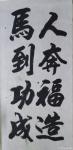 人奔福造
馬到功成